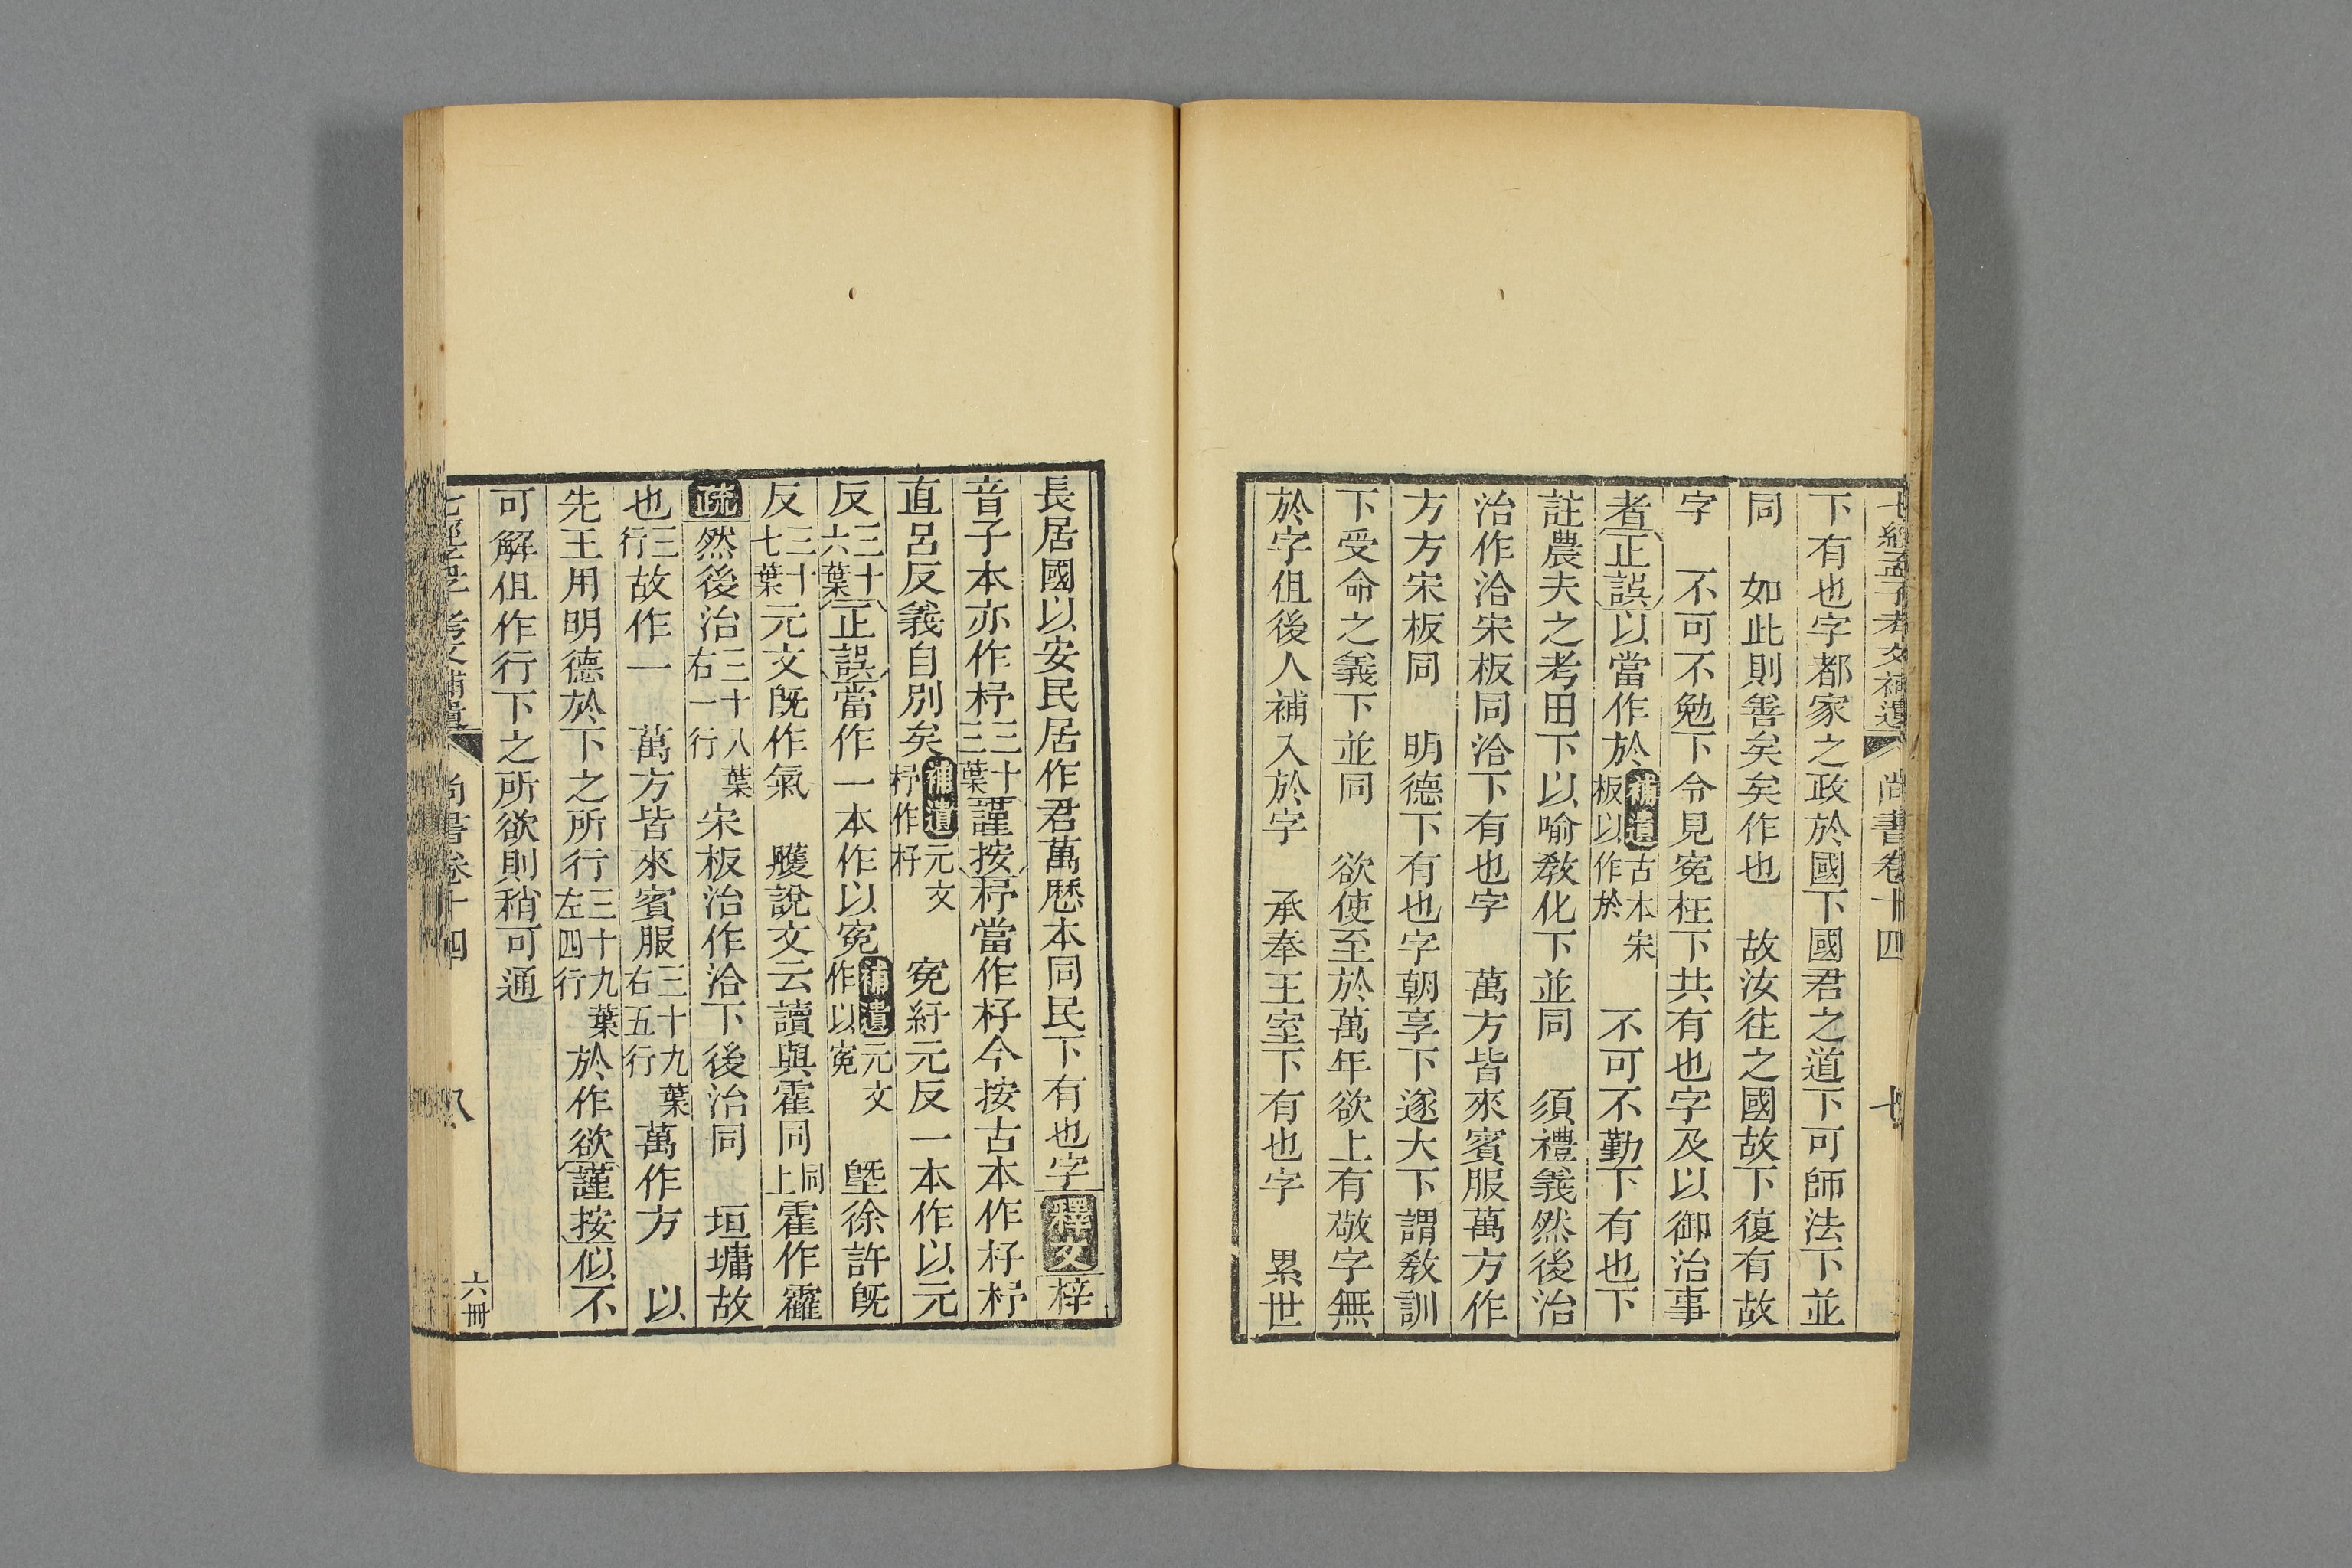 七經孟子考文補遺 尚書卷十四 七
下有也字都家之政於國下國君之道下可師法下並
同　如此則善矣矣作也　故汝往之國故下復有故
字　不可不勉下令見寃枉下共有也字及以御治事
者正誤以當作於補遺古本宋板以作於　不可不勤下有也下
註農夫之考田下以喻敎化下並同　須禮義然後治
治作洽宋板同洽下有也字　萬方皆來賓服萬方作
方方宋板同　明德下有也字朝享下遂大下謂敎訓
下受命之義下並同　欲使至於萬年欲上有敬字無
於字伹後人補入於字　承奉王室下有也字　累世
長居國以安民居作君萬曆本同民下有也字釋文梓
音子本亦作杍三十三葉謹按杍當作杍今按古本作杍杼
直呂反義自別矣補遺元文杼作杍　寃紆元反一本作以元
反三十六葉正誤當作一本作以寃補遺元文作以寃　塈徐許旣
反三十七葉元文旣作氣　雘說文云讀與霍同同上霍作靃
疏然後治三十八葉右一行宋板治作洽下後治同　垣墉故
也三行故作一　萬方皆來賓服三十九葉右五行萬作方　以
先王用明德於下之所行三十九葉左四行於作欲謹按似不
可解伹作行下之所欲則稍可通
七經孟子考文補遺 尚書卷十四 八 六冊